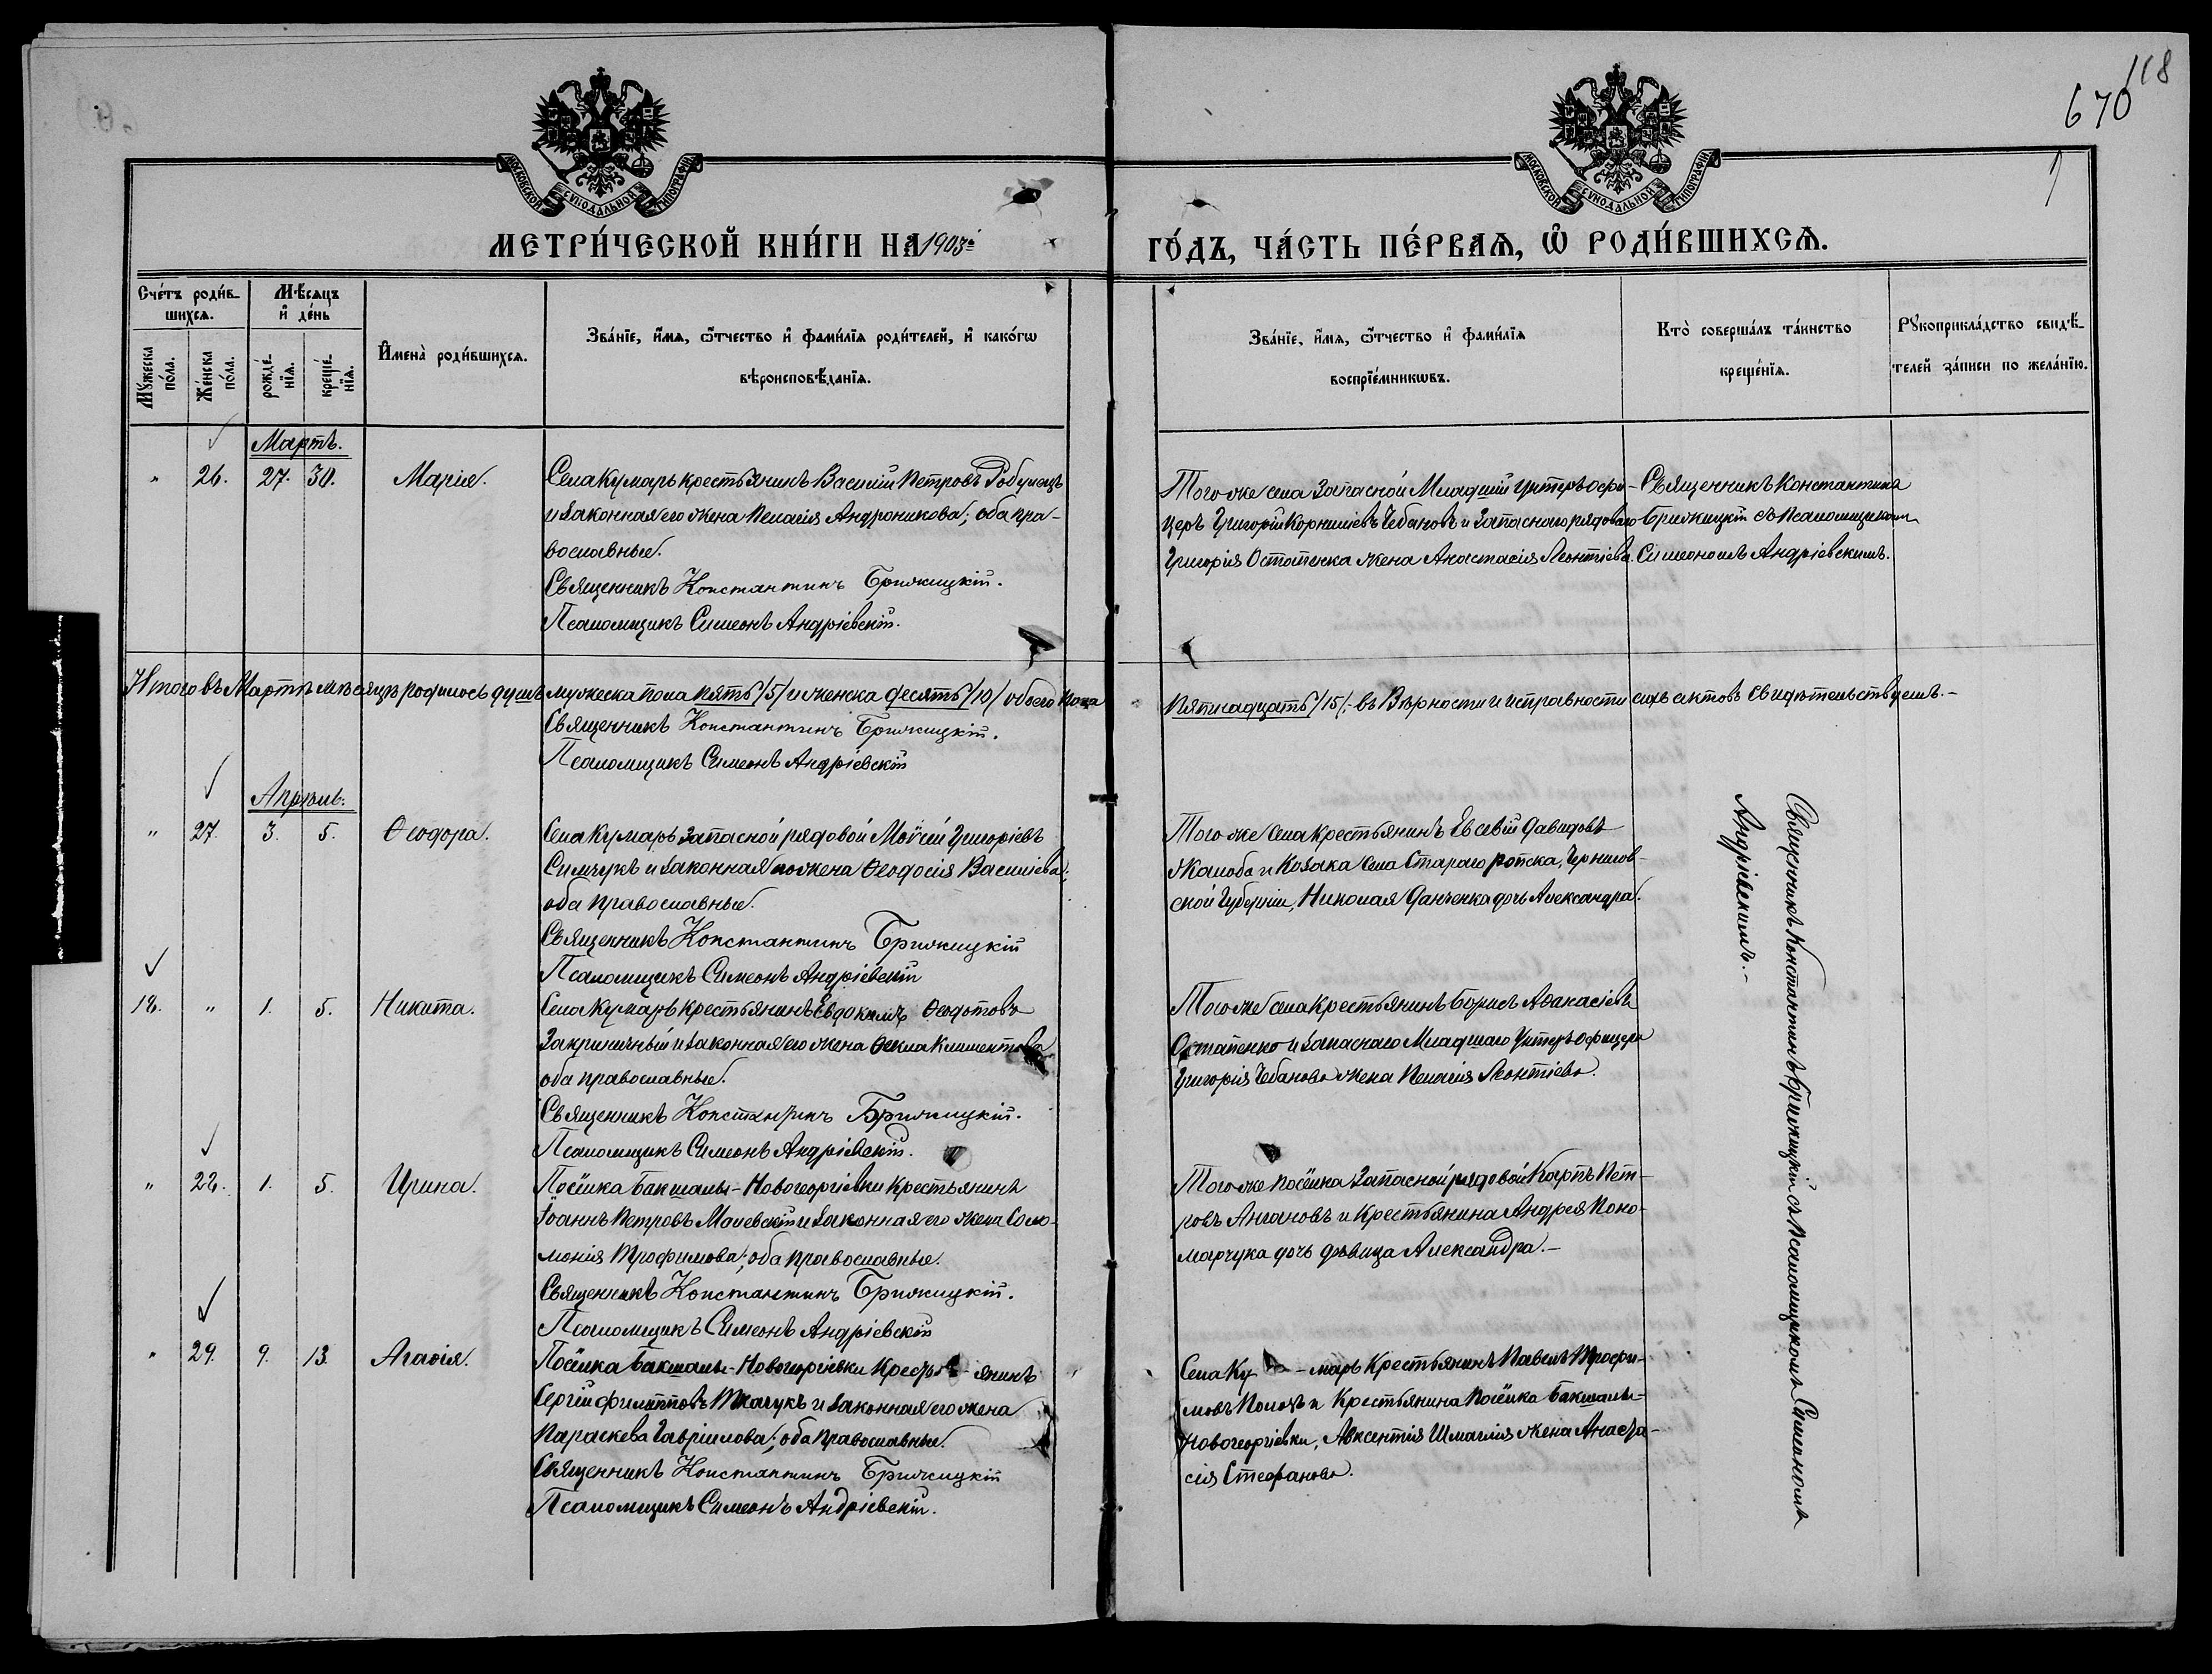 118
670
МОСКОВСКОЙ СѴНОДАЛЬНОЙ ТИПОГРАФІИ
МОСКОВСКОЙ СѴНОДАЛЬНОЙ ТИПОГРАФІИ
МЕТРИ́ЧЕСКОЙ КНИ́ГИ НА 1903й
ГО́ДЪ, ЧА́СТЬ ПЕ́РВАѦ, Ѡ РОДИ́ВШИХСѦ.
Сче́тъ роди́в-
шихсѧ.
Мѣ́сѧцъ
и де́нь
Мꙋжеска по́ла.
Же́нска по́ла.
рожде́нїѧ.
креще́нїѧ.
Имена̀ роди́вшихсѧ.
Зва́нїе, и́мѧ, ѻ́тчество и фами́лїѧ роди́телей, и како́гѡ
вѣроисповѣ́данїѧ.
Зва́нїе, и́мѧ, ѻ́тчество и фами́лїѧ
воспрїе́мникѡвъ.
Кто̀ соверша́лъ та́инство
креще́нїѧ.
Рꙋкоприкла́дство свидѣ́-
телей за́писи по жела́нїю.
Мартъ.
" 26. 27. 30. Марія.
Села Кумаръ крестьянинъ Василій Петровъ Робулецъ
и законная его жена Пелагія Андроникова; оба пра-
вославные.
Священникъ Константинъ Брижицкій.
Псаломщикъ Симеонъ Андріевскій.
Того же села Запасной Младшій Унтеръ офи-
церъ Григорій Корниліевъ Чебановъ и Запаснаго рядоваго
Григорія Остапенка жена Анастасія Леонтіева.
Священникъ Константинъ
Брижицкій съ Псаломщикомъ
Симеономъ Андріевскимъ.
Итого въ Мартѣ мѣсяцѣ родилось душъ мужеска пола пять /5/ и женска десять /10/ обоего пола
Пятнадцать /15/; въ Вѣрности и исправности сихъ актовъ свидѣтельствуемъ. –
Священникъ Константинъ Брижицкій.
Псаломщикъ Симеонъ Андріевскій
Апрѣль.
" 27. 3. 5. Ѳеодора.
Села Кумаръ Запасной рядовой Мойсій Григоріевъ
Симчукъ и законная его жена Ѳеодосія Василіева;
оба православные.
Священникъ Константинъ Брижицкій
Псаломщикъ Симеонъ Андріевскій
Того же села крестьянинъ Евсевій Давидовъ
Жалоба и Козака села Стараго Ропска, Чернигов-
ской Губерніи, Николая Данченка дочь Александра.
Священникъ Константинъ Брижицкій съ Псаломщикомъ Симеономъ
Андріевскимъ. –
18. " 1. 5. Никита.
Села Кумаръ крестьянинъ Евдокимъ Ѳедотовъ
Закриничный и законная его жена Ѳекла Климентова
оба православные.
Священникъ Константинъ Брижицкій.
Псаломщикъ Симеонъ Андріевскій.
Того же села крестьянинъ Борисъ Аѳанасіевъ
Остапенко и запаснаго Младшаго Унтеръ Офицера
Григорія Чебанова жена Пелагія Леонтіева.
" 28. 1. 5. Ирина.
Посёлка Бакшалы-Новогеоргіевки Крестьянинъ
Іоаннъ Петровъ Малевскій и законная его жена Соло-
монія Трофимова; оба православные.
Священникъ Константинъ Брижицкій.
Псаломщикъ Симеонъ Андріевскій
Того же посёлка Запасной рядовой Карпъ Пет-
ровъ Ангановъ и Крестьянина Андрея Поно-
марчука дочь дѣвица Александра. –
" 29. 9. 13. Агаѳія.
Посёлка Бакшалы-Новогеоргіевки Кресть-янинъ
Сергій Филипповъ Ткачукъ и законная его жена
Параскева Гавріилова; оба православные.
Священникъ Константинъ Брижицкій
Псаломщикъ Симеонъ Андріевскій.
Села Ку – маръ Крестьянинъ Павелъ Трофи-
мовъ и Крестьянина Посёлка Бакшалы-
Новогеоргіевки, Авксентія Шмаглія жена Анаста-
сія Стефанова.